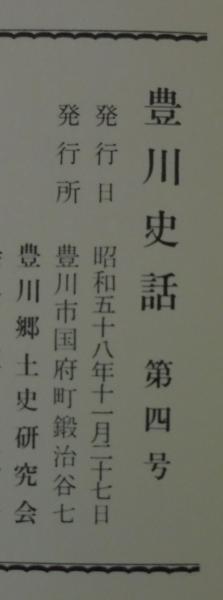 豊川史話 第四号
発行日 昭和五十八年十一月二十七日
発行所 豊川市国府町鍛治谷七
豊川郷土史研究会